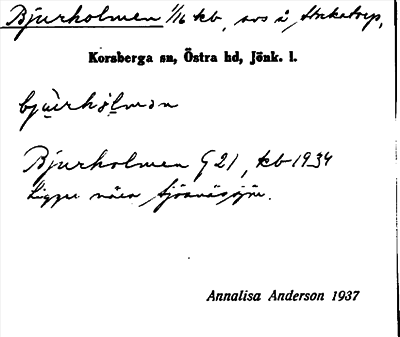 Bjurholmen 1/16 kb, sos å
Korsberga sn, Östra hd, Jönk. l.
bjuerhólmen
Bjurholmen G 21, kb 1934
Ligger nära
Annalisa Anderson 1937